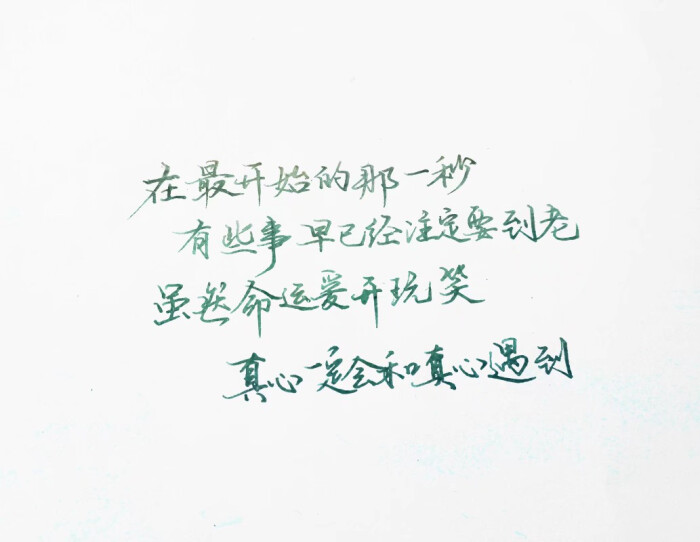 在最开始的那一秒
有些事早已经注定要到老
虽然命运爱开玩笑
真心一定会和真心遇到